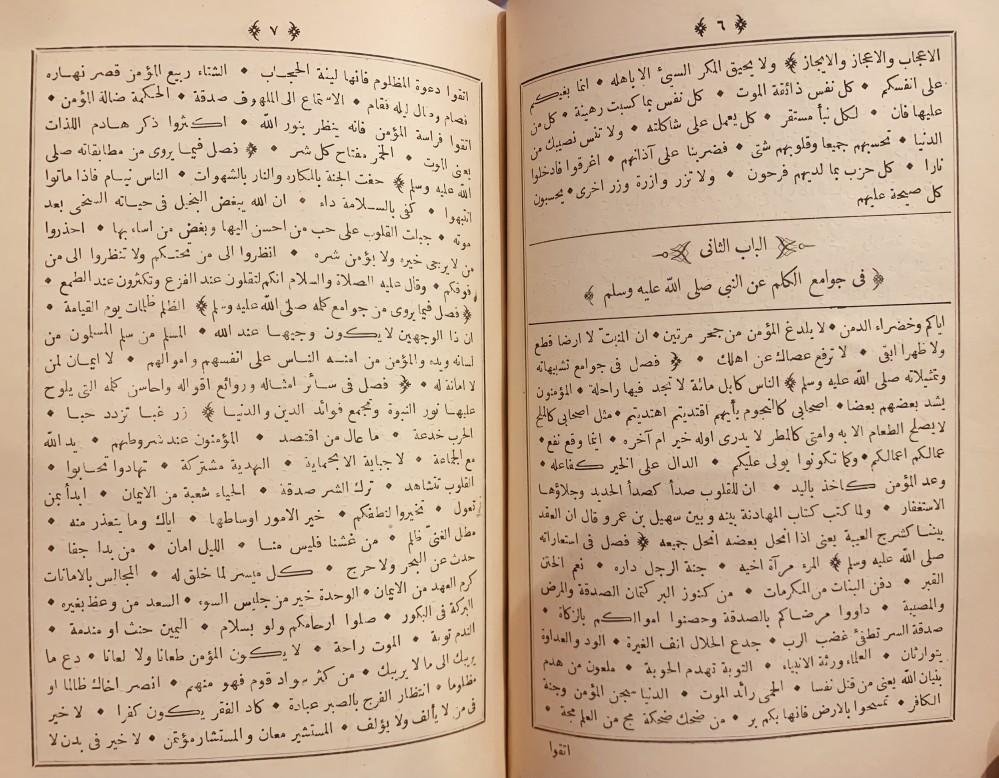 ﴿ ٦ ﴾
الاعجاب والاعجاز والايجاز ﴾ ولا يحيق المكر السيئ الا باهله • انما بغيكم
على انفسكم • كل نفس ذائقة الموت • كل نفس بما كسبت رهنية • كل من
عليها فان • لكل نبأ مستقر • كل يعمل على شاكلته • ولا تنس نصيبك من
الدنيا • تحسبهم جميعا وقلوبهم شتى • فضربنا على آذانهم • اغرقوا فادخلوا
نارا • كل حزب بما لديهم فرحون • ولا تزر وازرة وزر اخرى • يحسبون
كل صيحة عليهم
﴿ الباب الثانى ﴾
﴿ فى جوامع الكلم عن النبى صلى الله عليه وسلم ﴾
اياكم وخضراء الدمن • لا يلدغ المؤمن من جحر مرتين • ان المنبت لا ارضا قطع
ولا ظهرا ابقى • لا ترفع عصاك عن اهلك • ﴿ فصل فى جوامع تشبيهاته
وتمثيلاته صلى الله عليه وسلم ﴾ الناس كابل مائة لا تجد فيها راحلة • المؤمنون
يشد بعضهم بعضا • اصحابى كالنجوم بأيهم اقتديتم اهتديتم • مثل اصحابى كالملح
لا يصلح الطعام الا به وامتى كالمطر لا يدرى اوله خير ام آخره • انما وقع نفع •
عمالكم اعمالكم • وكما تكونوا يولى عليكم • الدال على الخير كفاعله •
وعد المؤمن كاخذ باليد • ان للقلوب صدأ كصدأ الحديد وجلاؤها
الاستغفار • ولما كتب كتاب المهادنة بينه وبين سهيل بن عمرو قال ان العقد
بيننا كشرج العيبة يعنى اذا انحل بعضه انحل جميعه ﴿ فصل فى استعاراته
صلى الله عليه وسلم ﴾ المرء مرآة اخيه • جنة الرجل داره • نعم الختن
القبر • دفن البنات من المكرمات • من كنوز البر كتمان الصدقة والمرض
والمصيبة • داووا مرضاكم بالصدقة وحصنوا اموالكم بالزكاة •
صدقة السر تطفئ غضب الرب • جدع الحلال انف الغيرة • الود والعداوة
يتوارثان • العلماء ورثة الانبياء • التوبة تهدم الحوبة • ملعون من هدم
بنيان الله يعنى من قتل نفسا • الحمى رائد الموت • الدنيا سجن المؤمن وجنة
الكافر • تمسحوا بالارض فانها بكم بر • من ضحك ضحكة مج من العلم مجة •
اتقوا
﴿ ٧ ﴾
اتقوا دعوة المظلوم فانها لينة الحجاب • الشتاء ربيع المؤمن قصر نهاره
فصام وطال ليله فقام • الاستماع الى الملهوف صدقة • الحكمة ضالة المؤمن •
اتقوا فراسة المؤمن فانه ينظر بنور الله • اكثروا ذكر هادم اللذات
يعنى الموت • الخمر مفتاح كل شر • ﴿ فصل فيما يروى من مطابقاته صلى
الله عليه وسلم ﴾ حفت الجنة بالمكاره والنار بالشهوات • الناس نيام فاذا ماتوا
انتبهوا • كفى بالسلامة داء • ان الله يبغض البخيل فى حياته السخى بعد
موته • جبلت القلوب على حب من احسن اليها وبغض من اساء بها • احذروا
من لا يرجى خيره ولا يؤمن شره • انظروا الى من تحتكم ولا تنظروا الى من
فوقكم • وقال عليه الصلاة والسلام انكم لتقلون عند الفزع وتكثرون عند الطمع •
﴿ فصل فيما يروى من جوامع كلمه صلى الله عليه وسلم ﴾ الظلم ظلمات يوم القيامة •
ان ذا الوجهين لا يكون وجيها عند الله • المسلم من سلم المسلمون من
لسانه ويده والمؤمن من امنه الناس على انفسهم واموالهم • لا ايمان لمن
لا امانة له • ﴿ فصل فى سائر امثاله وروائع اقواله واحاسن كلمه التى يلوح
عليها نور النبوة وتجمع فوائد الدين والدنيا ﴾ زر غبا تزدد حبا •
الحرب خدعة • ما عال من اقتصد • المؤمنون عند شروطهم • يد الله
مع الجماعة • لا جباية الا بحماية • الهدية مشتركة • تهادوا تحابوا •
القلوب تتشاهد • ترك الشر صدقة • الحياء شعبة من الايمان • ابدأ بمن
تعول • تخيروا لنطفكم • خير الامور اوساطها • اياك وما يتعذر منه •
مطل الغنى ظلم • من غشنا فليس منا • الليل امان • من بدا جفا •
حدث عن البحر ولا حرج • كل ميسر لما خلق له • المجالس بالامانات
كرم العهد من الايمان • الوحدة خير من جليس السوء • السعد من وعظ بغيره •
البركة فى البكور • صلوا ارحامكم ولو بسلام • اليمين حنث او مندمة •
الندم توبة • الموت راحة • لا يكون المؤمن طعانا ولا لعانا • دع ما
يريبك الى ما لا يريبك • من كثر سواد قوم فهو منهم • انصر اخاك ظالما او
مظلوما • انتظار الفرج بالصبر عبادة • كاد الفقر يكون كفرا • لا خير
فى من لا يألف ولا يؤلف • المستشير معان والمستشار مؤتمن • لا خير فى بدن لا